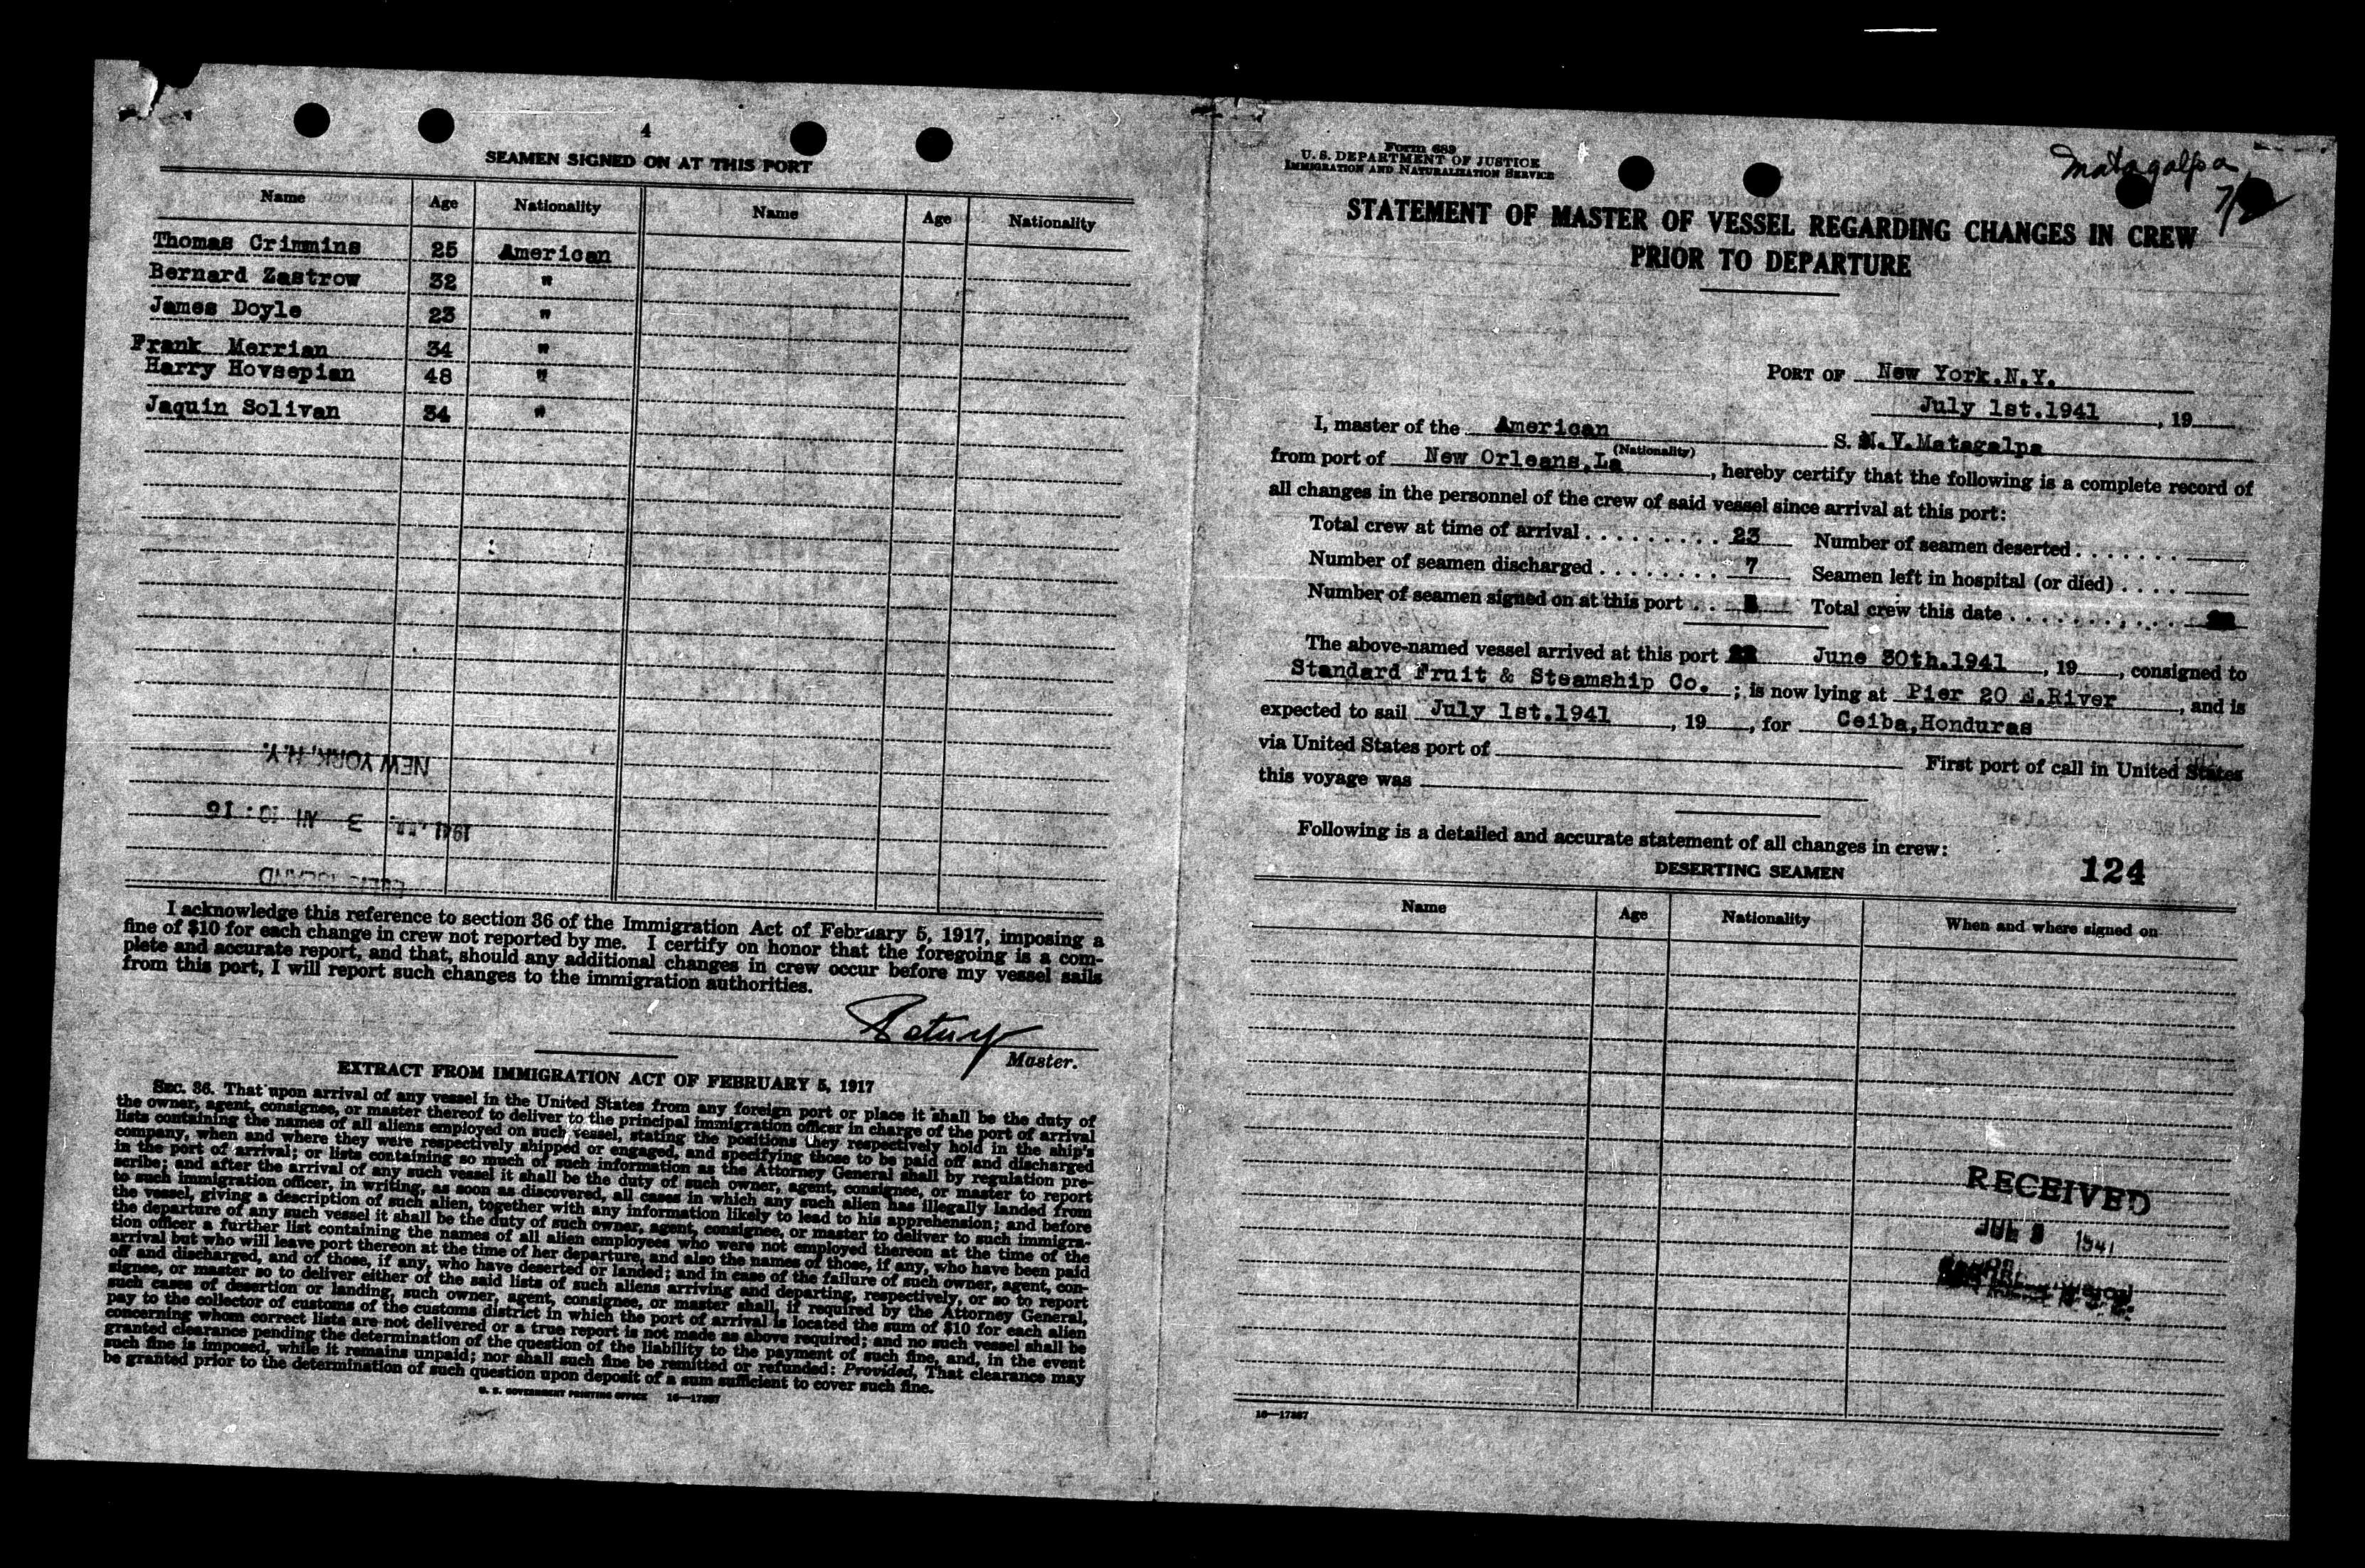 4
SEAMEN SIGNED ON AT THIS PORT
Name Age Nationality Name Age Nationality
Thomas Crimmins 25 American
Bernard Zastrow 32 "
James Doyle 23 "
Frank Merrian 34 "
Harry Hovsepian 48 "
Jaquin Solivan 34 "
NEW YORK, N.Y.
1941 3 AM 10:16
ELLIS ISLAND
I acknowledge this reference to section 36 of the Immigration Act of February 5, 1917, imposing a
fine of $10 for each change in crew not reported by me. I certify on honor that the foregoing is a com-
plete and accurate report, and that, should any additional changes in crew occur before my vessel sails
from this port, I will report such changes to the immigration authorities.
Master.
EXTRACT FROM IMMIGRATION ACT OF FEBRUARY 5, 1917
Sec. 36. That upon arrival of any vessel in the United States from any foreign port or place it shall be the duty of
the owner, agent, consignee, or master thereof to deliver to the principal immigration officer in charge of the port of arrival
lists containing the names of all aliens employed on such vessel, stating the positions they respectively hold in the ship's
company, when and where they were respectively shipped or engaged, and specifying those to be paid off and discharged
in the port of arrival; or lists containing so much of such information as the Attorney General shall by regulation pre-
scribe; and after the arrival of any such vessel it shall be the duty of such owner, agent, consignee, or master to report
to such immigration officer, in writing, as soon as discovered, all cases in which any such alien has illegally landed from
the vessel, giving a description of such alien, together with any information likely to lead to his apprehension; and before
the departure of any such vessel it shall be the duty of such owner, agent, consignee, or master to deliver to such immigra-
tion officer a further list containing the names of all alien employees who were not employed thereon at the time of the
arrival but who will leave port thereon at the time of her departure, and also the names of those, if any, who have been paid
off and discharged, and of those, if any, who have deserted or landed; and in case of the failure of such owner, agent, con-
signee, or master so to deliver either of the said lists of such aliens arriving and departing, respectively, or so to report
such cases of desertion or landing, such owner, agent, consignee, or master shall, if required by the Attorney General,
pay to the collector of customs of the customs district in which the port of arrival is located the sum of $10 for each alien
concerning whom correct lists are not delivered or a true report is not made as above required; and no such vessel shall be
granted clearance pending the determination of the question of the liability to the payment of such fine, and, in the event
such fine is imposed, while it remains unpaid; nor shall such fine be remitted or refunded: Provided, That clearance may
be granted prior to the determination of such question upon deposit of a sum sufficient to cover such fine.
U. S. GOVERNMENT PRINTING OFFICE 16—17887
Form 689
U. S. DEPARTMENT OF JUSTICE
IMMIGRATION AND NATURALIZATION SERVICE
Matagalpa
STATEMENT OF MASTER OF VESSEL REGARDING CHANGES IN CREW
PRIOR TO DEPARTURE
PORT OF New York.N.Y.
July 1st.1941, 19
I, master of the American S. M.V.Matagalpa
(Nationality)
from port of New Orleans,La, hereby certify that the following is a complete record of
all changes in the personnel of the crew of said vessel since arrival at this port:
Total crew at time of arrival . . . . . . . . . 23 Number of seamen deserted . . . . . . .
Number of seamen discharged . . . . . . . . 7 Seamen left in hospital (or died) . . . .
Number of seamen signed on at this port . . Total crew this date . . . . . . . . . .
The above-named vessel arrived at this port June 30th.1941, 19, consigned to
Standard Fruit & Steamship Co. ; is now lying at Pier 20 E.River, and is
expected to sail July 1st.1941, 19, for Ceiba,Honduras
via United States port of First port of call in United States
this voyage was
Following is a detailed and accurate statement of all changes in crew:
124
DESERTING SEAMEN
Name Age Nationality When and where signed on
RECEIVED
JUL 3 1941
16—17887